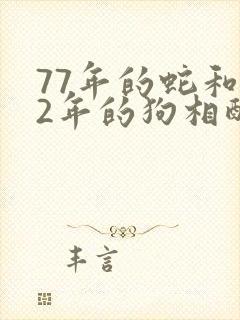 77年的蛇和
2年的狗相酉
丰言